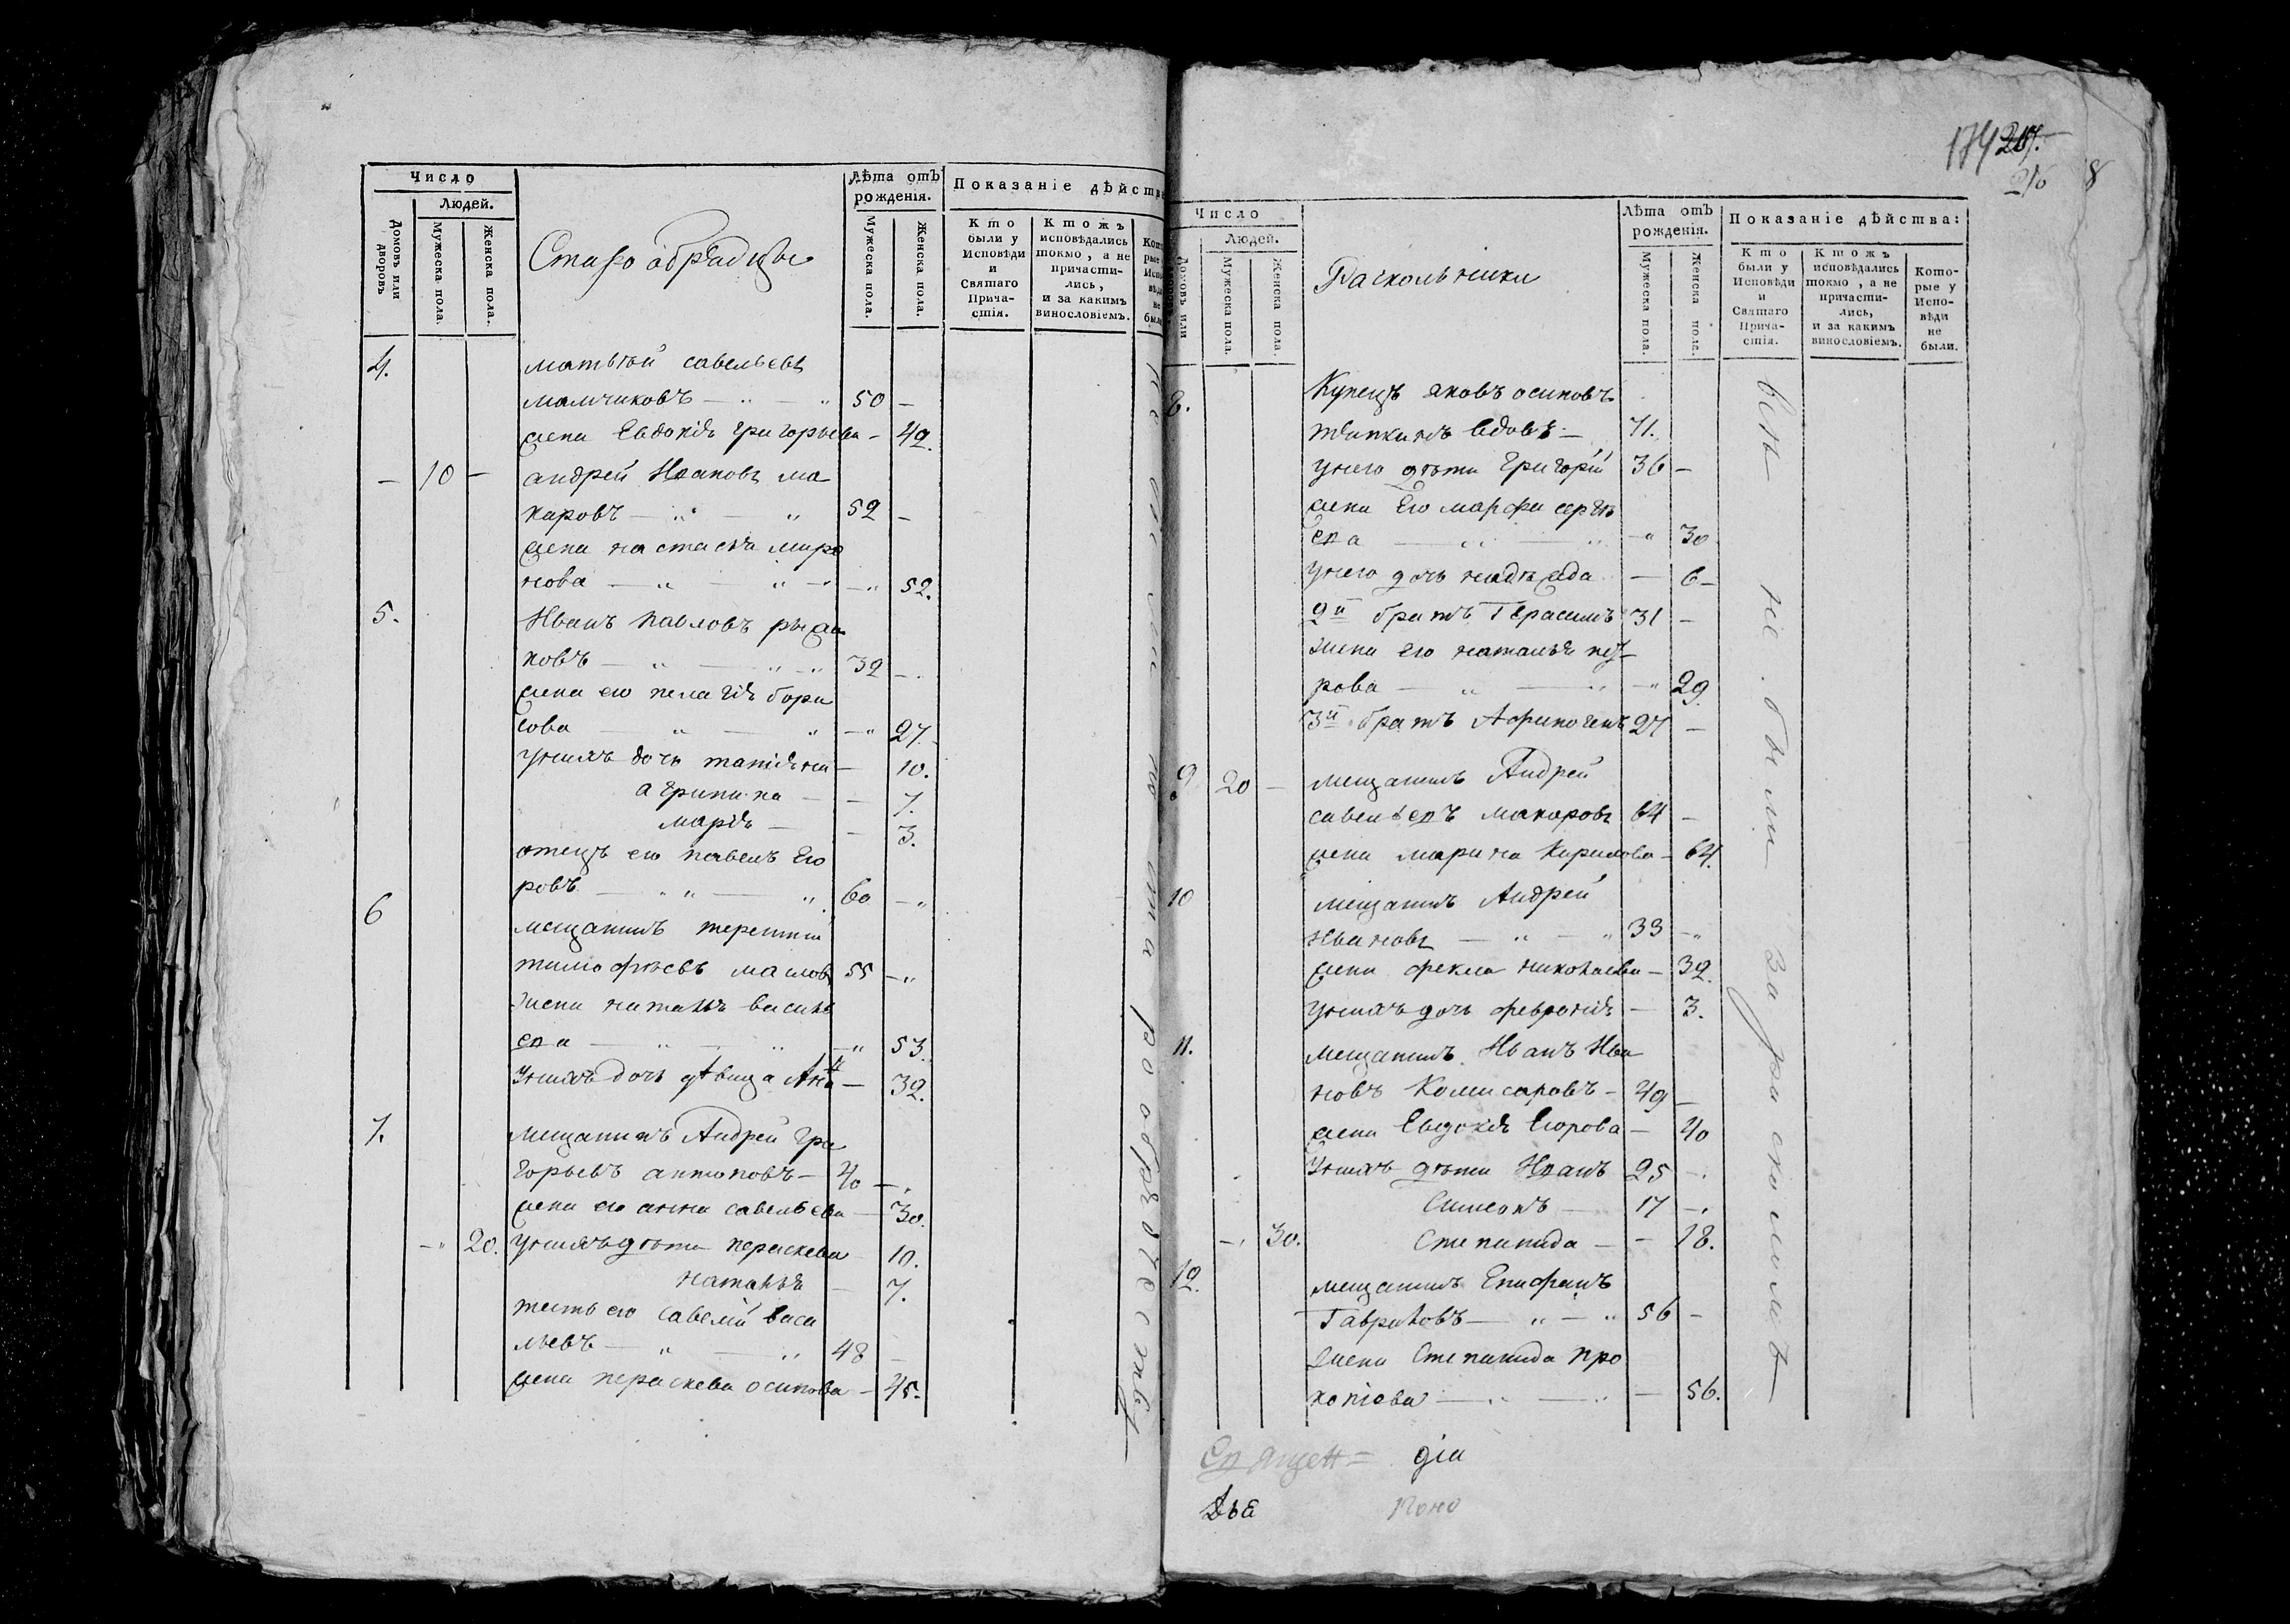 Число
Людей.
Домовъ или дворовъ
Мужеска пола.
Женска пола.
Старообрядцы
Лѣта отъ рожденія.
Мужеска пола.
Женска пола.
Показаніе дѣйств
Кто были у Исповѣди и Святаго Прича-стія.
Ктожъ исповѣдались токмо, а не причасти-лись, и за какимъ винословіемъ.
4. матвѣй савельевъ
мамчиковъ — " — " 50 —
жена Евдокія григорьева — 49.
— 10 — андрей Ивановъ ма
каровъ — " — " 52 —
жена настасья миро
нова — " — " — " 52.
5. Иванъ павловъ рыжи
ковъ — " — " " 32 —
жена его пелагія бори
сова — " — " — " 27.
унихъ дочь татіяна — 10.
агрипина — — 7.
марія — — 3.
отецъ его павелъ Его
ровъ — " — " 60 — "
6 мещанинъ терентій
тимофѣевъ масловъ 55 — "
жена наталья василь
ева — " — " — " 53.
Унихъ дочь дѣвица Анна — 32.
7. мещанинъ Андрей гри
горьевъ антоновъ — 40 —
жена его анна савельева — 30.
— " 20. Унихъ дѣти параскева 10.
наталья — 7.
тесть его савелій васи
льевъ — " — " 48 —
жена параскева осипова — 45.
174 217.
216 8
Число
Людей.
Домовъ или
Мужеска пола.
Женска пола.
Раскольники
Лѣта отъ рожденія.
Мужеска пола.
Женска пола.
Показаніе дѣйства:
Кто были у Исповѣди и Святаго Прича-стія.
Ктожъ исповѣдались токмо, а не причасти-лись, и за какимъ винословіемъ.
Кото-рые у Испо-вѣди не были.
8. Купецъ яковъ осиповъ
вдовъ — 71.
унего дѣти Григорій 36 —
жена Его марфа сергѣ
ева — " — " — " 30
унего дочь надежда — 6 —
2й братъ Герасимъ 31 —
жена его наталья
рова — " — " — " 29.
3й братъ 27 —
9 20 — мещанинъ Андрей
савельевъ макаровъ 64 —
жена марина Кирилова — 64.
10 мещанинъ Андрей
Ивановъ — " — " 33 — "
жена фекла николаева — 32.
унихъ дочь февронія — 3.
11. мещанинъ Иванъ Ива
новъ Комисаровъ — 49 —
жена Евдокія Егорова — 40
Унихъ дѣти Иванъ 25 —
Симеонъ — 17 —
— 30. Степанида — — 18.
12. мещанинъ Епифанъ
Гавриловъ — " — " 56 —
жена Степанида про
копіева — " — " — 56.
не были за расколомъ
Священ=
діа
Двѣ
Поно